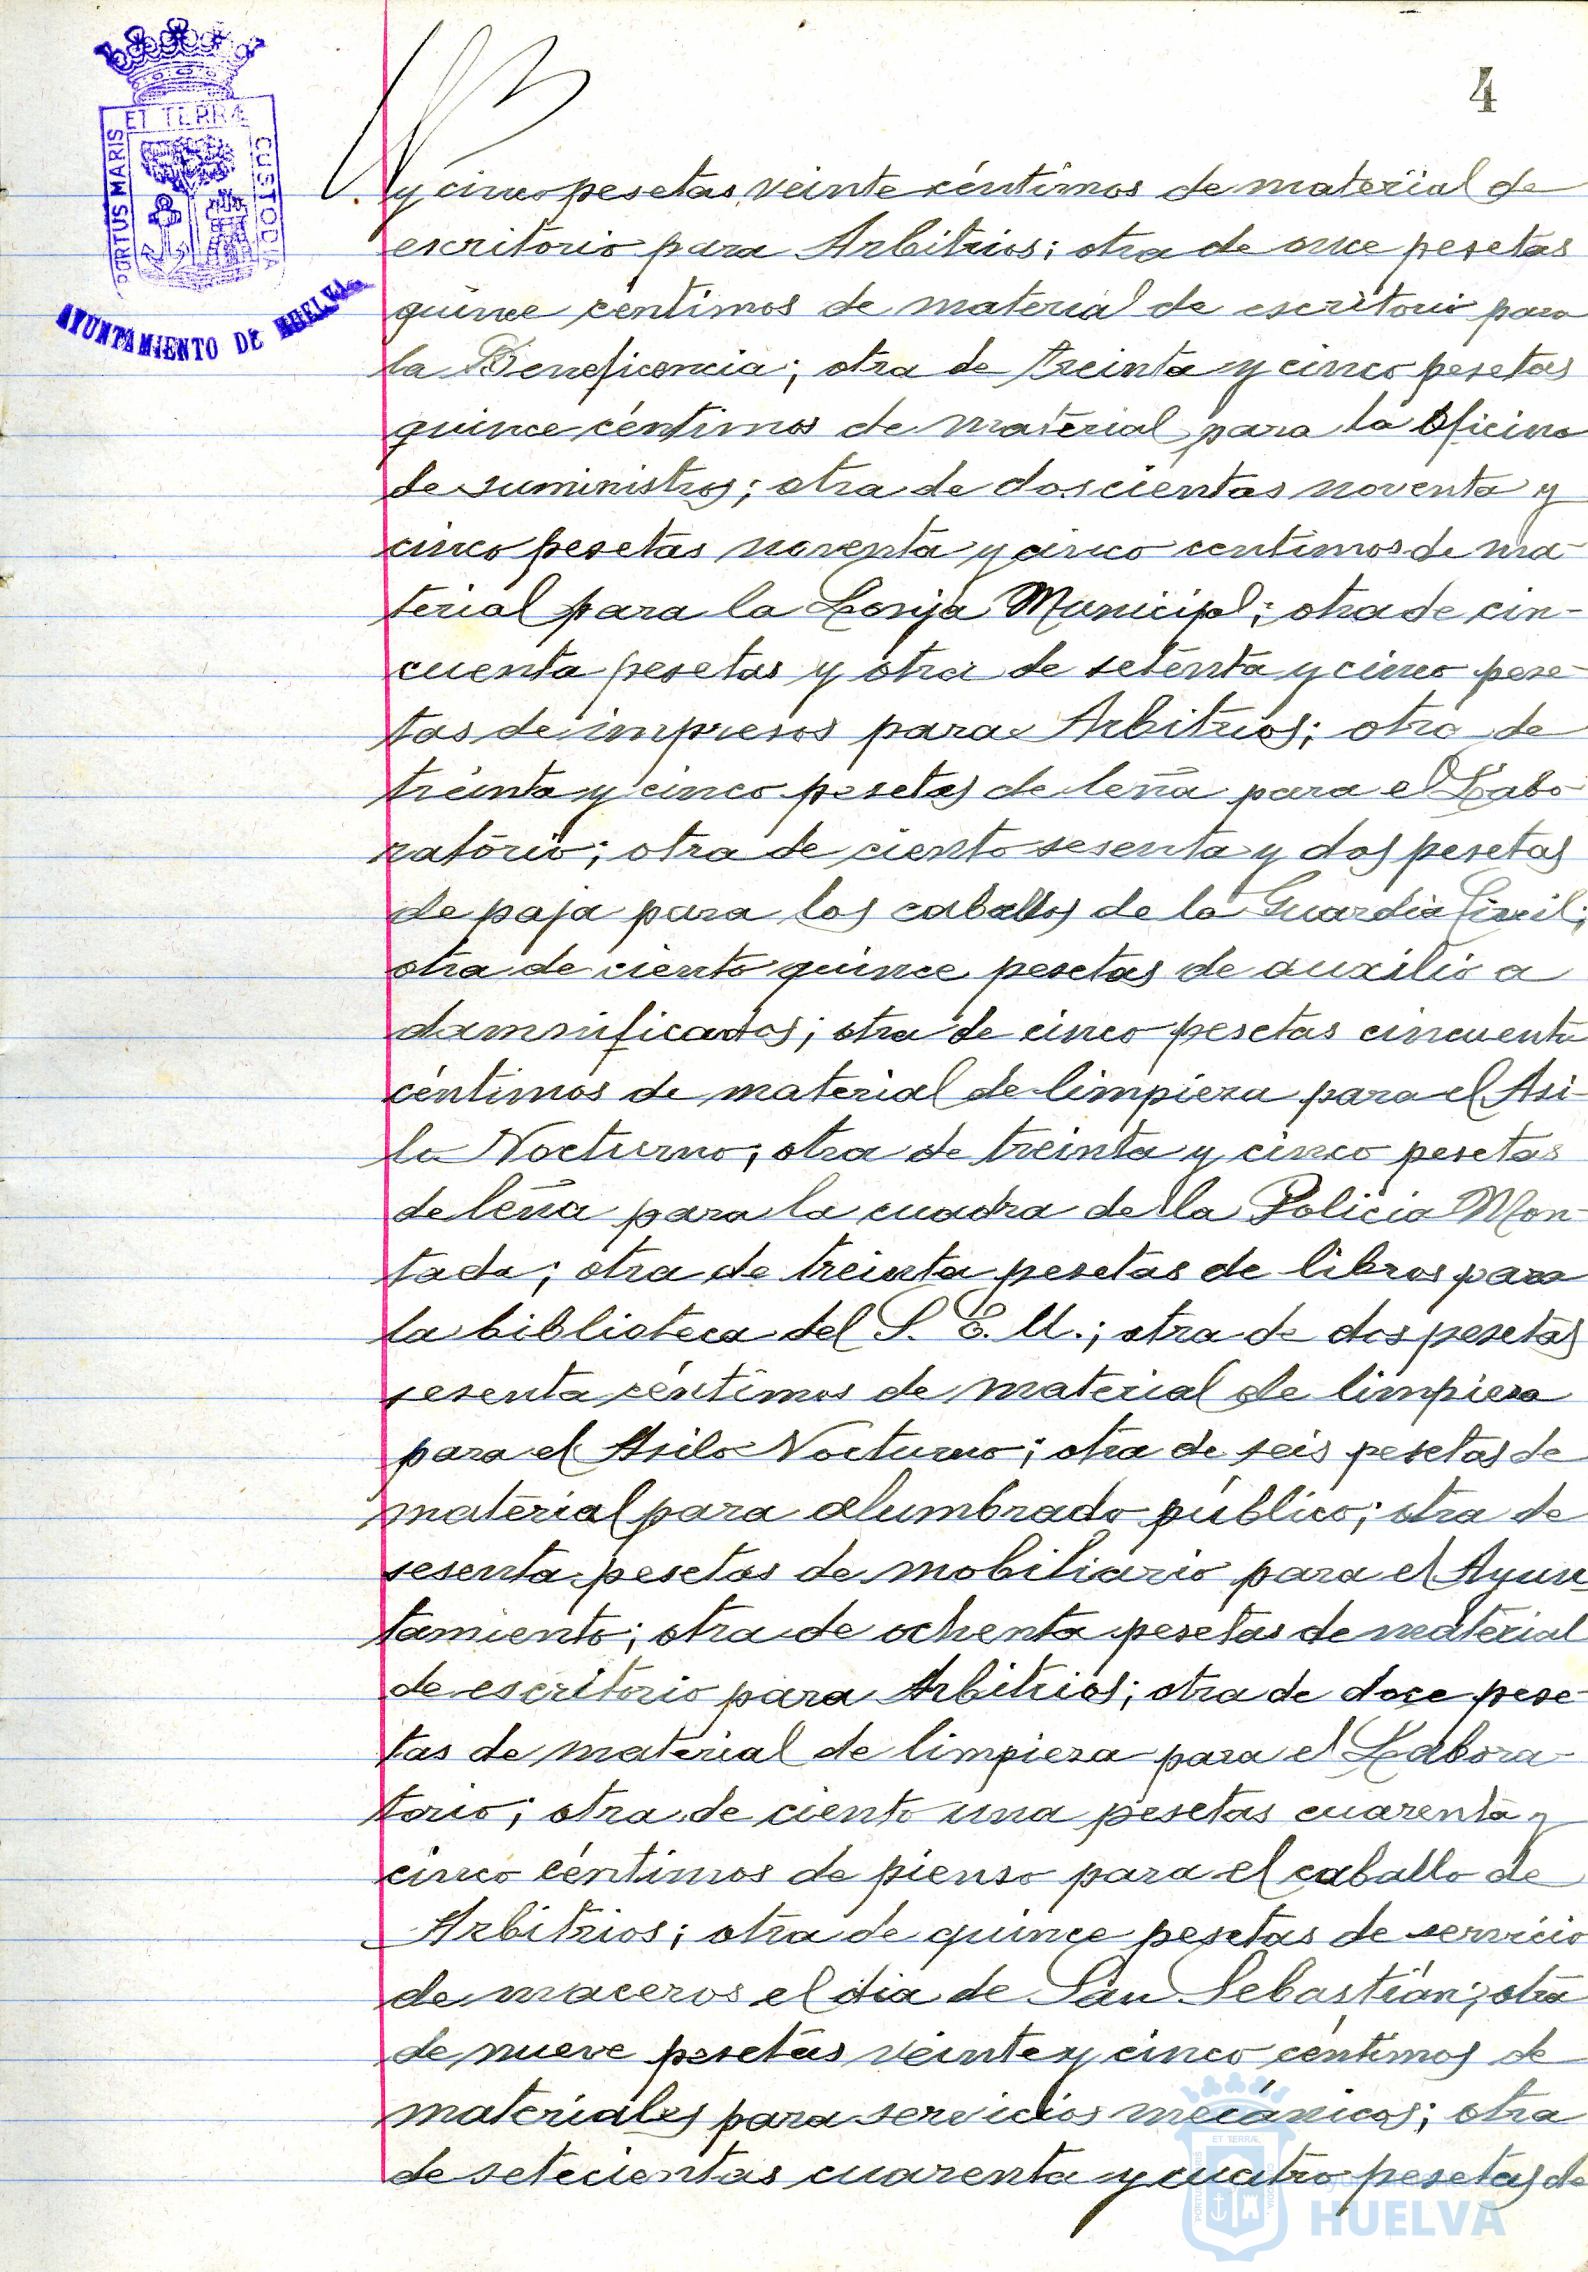 4
ET TERRÆ
PORTUS MARIS
CUSTODIA
AYUNTAMIENTO DE HUELVA
y cinco pesetas veinte céntimos de material de
escritorio para Arbitrios; otra de once pesetas
quince céntimos de material de escritorio para
la Beneficencia; otra de treinta y cinco pesetas
quince céntimos de material para la Oficina
de suministros; otra de doscientas noventa y
cinco pesetas noventa y cinco centimos de ma-
terial para la Lonja Municipal; otra de cin-
cuenta pesetas y otra de setenta y cinco pese-
tas de impresos para Arbitrios; otra de
treinta y cinco pesetas de leña para el Labo-
ratorio; otra de ciento sesenta y dos pesetas
de paja para los caballos de la Guardia Civil;
otra de ciento quince pesetas de auxilio a
damnificados; otra de cinco pesetas cincuenta
céntimos de material de limpieza para el Asi-
lo Nocturno; otra de treinta y cinco pesetas
de leña para la cuadra de la Policia Mon-
tada; otra de treinta pesetas de libros para
la biblioteca del S. E. U.; otra de dos pesetas
sesenta céntimos de material de limpieza
para el Asilo Nocturno; otra de seis pesetas de
material para alumbrado público; otra de
sesenta pesetas de mobiliario para el Ayun-
tamiento; otra de ochenta pesetas de material
de escritorio para Arbitrios; otra de doce pese-
tas de material de limpieza para el Labora-
torio; otra de ciento una pesetas cuarenta y
cinco céntimos de pienso para el caballo de
Arbitrios; otra de quince pesetas de servicio
de maceros el dia de San Sebastián; otra
de nueve pesetas veinte y cinco céntimos de
materiales para servicios mecánicos; otra
de setecientas cuarenta y cuatro pesetas de
HUELVA